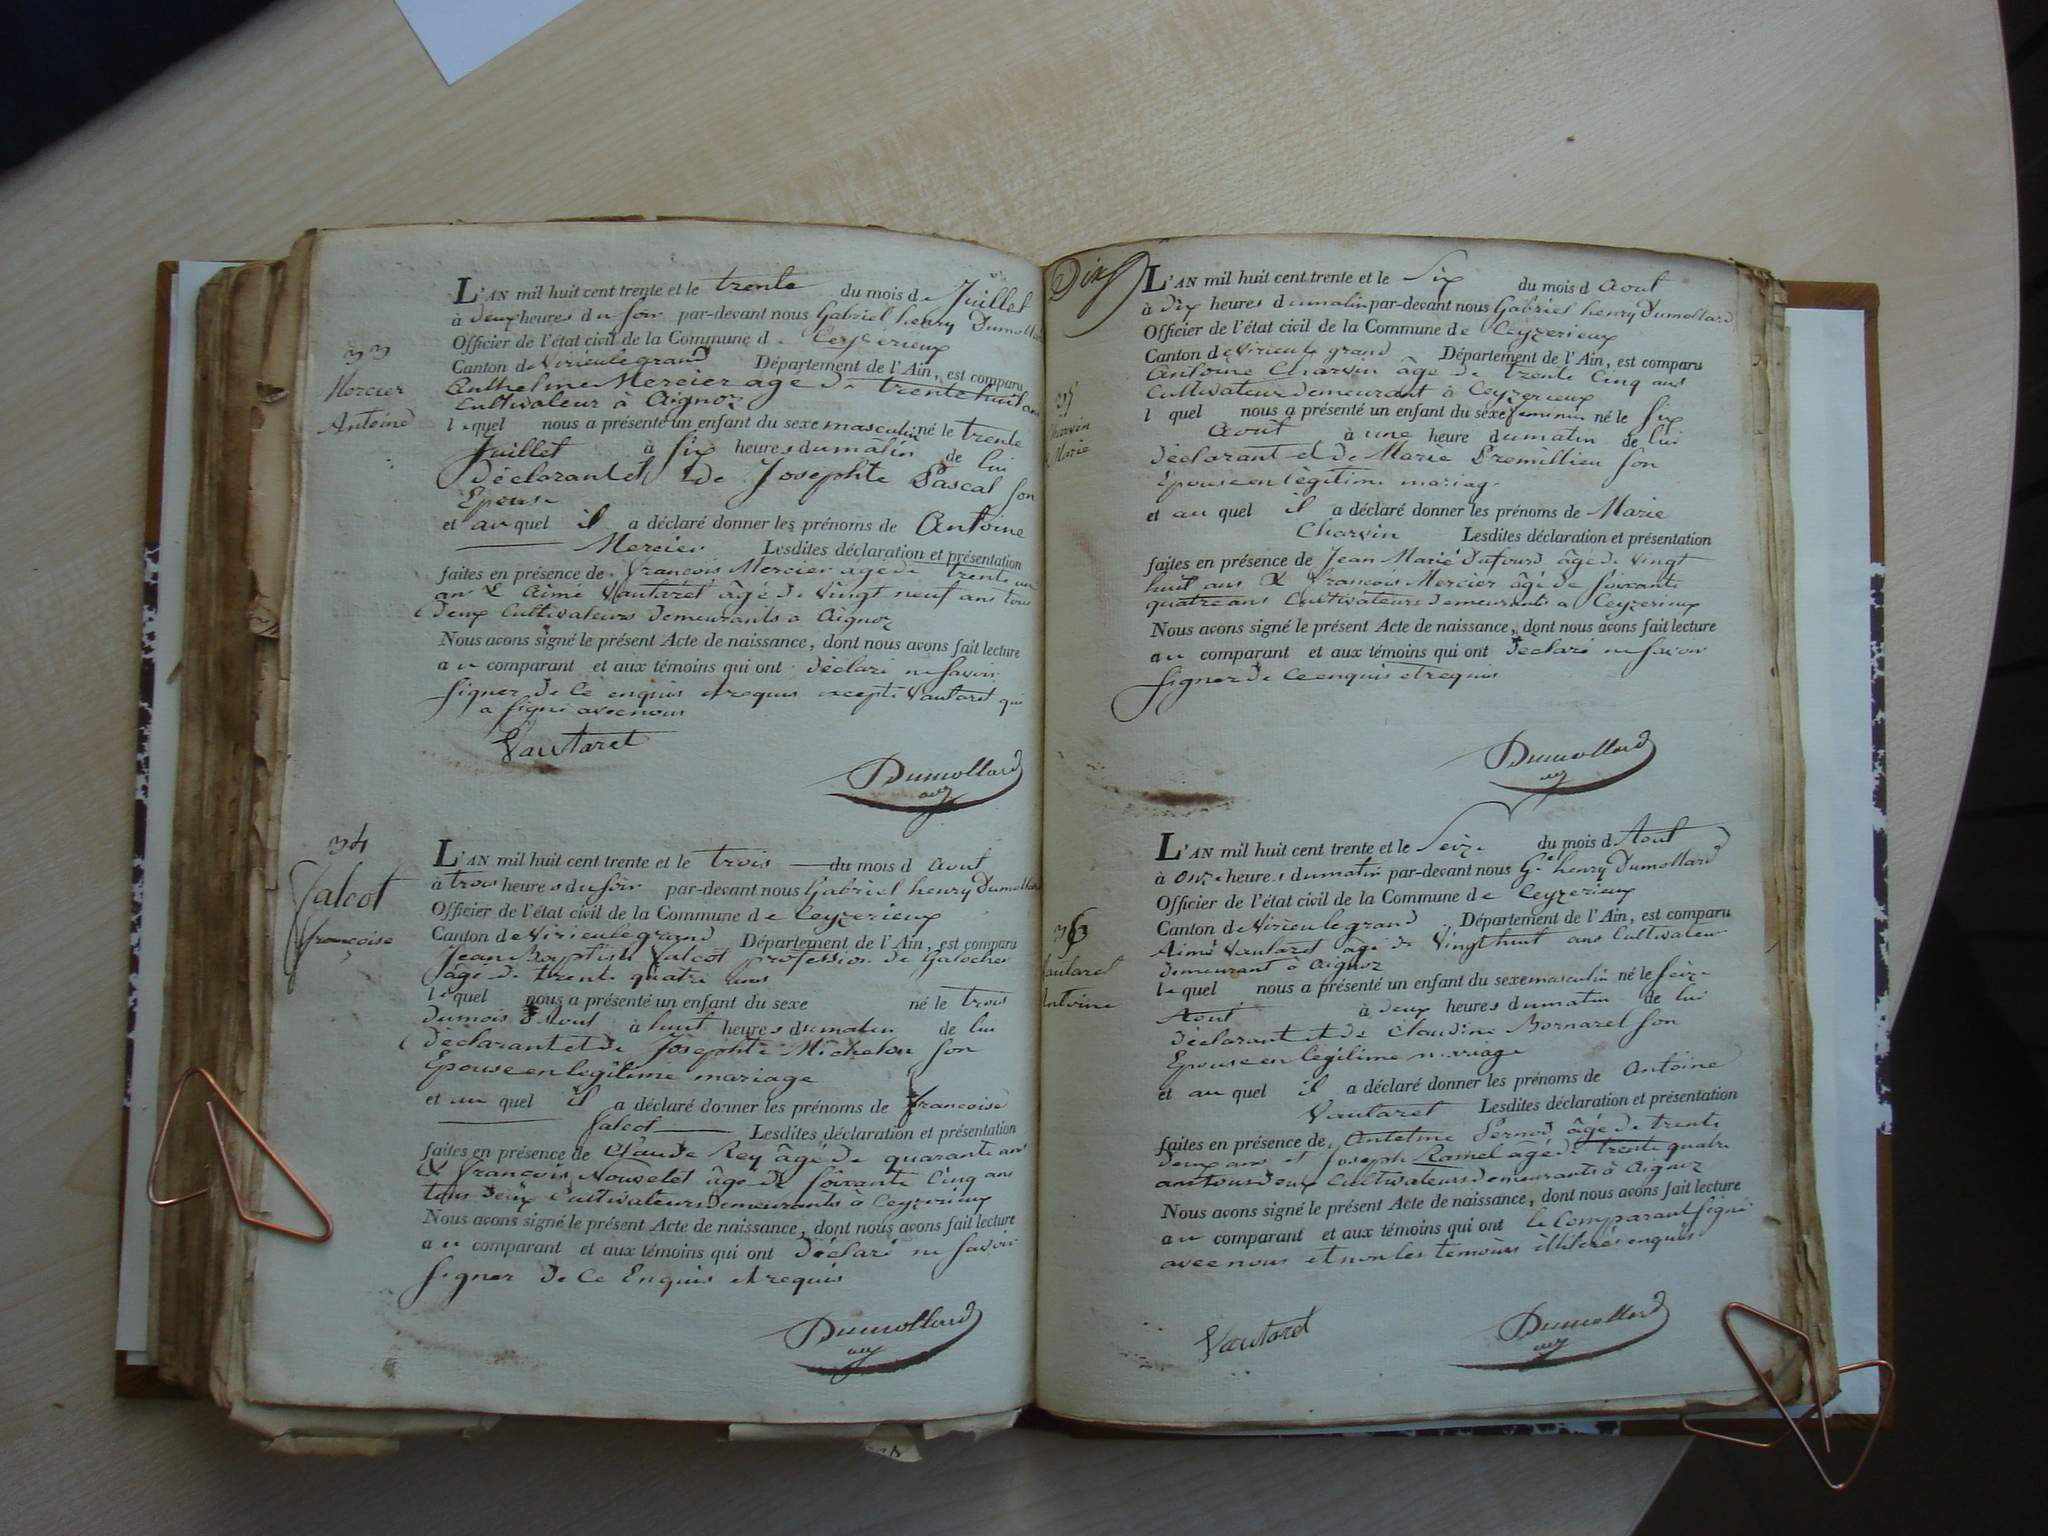 33
Mercier
Antoine
L'AN mil huit cent trente et le trente du mois de Juillet
à deux heures du soir par-devant nous Gabriel henry Dumollard
Officier de l'état civil de la Commune de Ceyzerieux
Canton de Virieulegrand Département de l'Ain, est comparu
Anthelme Mercier age de trente huit ans
Cultivateur à Aignoz
lequel nous a présenté un enfant du sexe masculin né le trente
Juillet à six heures du matin de lui
Déclarant et de Josephte Pascal son
Epouse
et auquel il a déclaré donner les prénoms de Antoine
Mercier Lesdites déclaration et présentation
faites en présence de françois Mercier age de trente un
an & Aimé Vautaret âgé de Vingt neuf ans tous
deux Cultivateurs demeurants a Aignoz
Nous avons signé le présent Acte de naissance, dont nous avons fait lecture
au comparant et aux témoins qui ont déclaré ne savoir
signer de Ce enquis et requis excepté Vautaret qui
a signé avec nous
Vautaret
Dumollard
34
Jalcot
françoise
L'AN mil huit cent trente et le trois du mois d Aout
à trois heures du soir par-devant nous Gabriel henry Dumollard
Officier de l'état civil de la Commune de Ceyzerieux
Canton de Virieulegrand Département de l'Ain, est comparu
Jean Baptiste Jalcot profession de Galocher
âgé de trente quatre ans
lequel nous a présenté un enfant du sexe né le trois
du mois d'Aout à huit heures du matin de lui
Déclarant et de Josephte Michelon son
Epouse en legitime mariage
et au quel il a déclaré donner les prénoms de françoise
Jalcot Lesdites déclaration et présentation
faites en présence de Claude Rey âgé de quarante ans
& françois Nouvelet âgé de soixante Cinq ans
tous deux Cultivateurs demeurants à Ceyzerieux
Nous avons signé le présent Acte de naissance, dont nous avons fait lecture
au comparant et aux témoins qui ont déclaré ne savoir
signer de Ce Enquis et requis
Dumollard
35
Charvin
Marie
L'AN mil huit cent trente et le six du mois d Aout
à dix heures du matin par-devant nous Gabriel henry Dumollard
Officier de l'état civil de la Commune de Ceyzerieux
Canton de Virieu le grand Département de l'Ain, est comparu
Antoine Charvin âgé de trente Cinq ans
Cultivateur demeurant à Ceyzerieux
lequel nous a présenté un enfant du sexe feminin né le six
Aout à une heure du matin de lui
déclarant et de Marie Premillieu son
Epouse en légitime mariage
et au quel il a déclaré donner les prénoms de Marie
Charvin Lesdites déclaration et présentation
faites en présence de Jean Marie Dufourd âgé de vingt
huit ans & françois Mercier âgé de soixante
quatre ans Cultivateurs demeurants a Ceyzerieux
Nous avons signé le présent Acte de naissance, dont nous avons fait lecture
au comparant et aux témoins qui ont déclaré ne savoir
signer de Ce enquis et requis
Dumollard
36
Vautaret
Antoine
L'AN mil huit cent trente et le seize du mois d Aout
à onze heures du matin par-devant nous Gel henry Dumollard
Officier de l'état civil de la Commune de Ceyzerieux
Canton de Virieulegrand Département de l'Ain, est comparu
Aimé Vautaret âgé de Vingt huit ans Cultivateur
demeurant à Aignoz
lequel nous a présenté un enfant du sexe masculin né le seize
Aout à deux heures du matin de lui
déclarant et de Claudine Bornarel son
Epouse en légitime mariage
et au quel il a déclaré donner les prénoms de Antoine
Vautaret Lesdites déclaration et présentation
faites en présence de Antelme Pernod âgé de trente
deux ans et Joseph Ramel agé de trente quatre
ans tous deux Cultivateurs demeurants à Aignoz
Nous avons signé le présent Acte de naissance, dont nous avons fait lecture
au comparant et aux témoins qui ont le Comparant signé
avec nous et non les temoins illiterés enquis
Vautaret
Dumollard